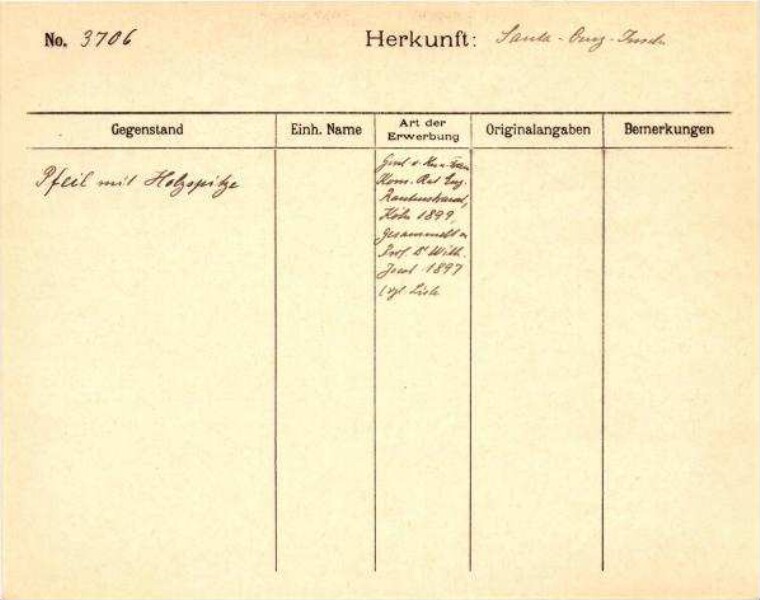 No. 3706
Herkunft: Santa-Cruz-Inseln
Gegenstand
Einh. Name
Art der Erwerbung
Originalangaben
Bemerkungen
Pfeil mit Holzspitze
Gesch. v.
Kom. Rat Eug.
Rautenstrauch,
Köln 1899,
gesammelt v.
Prof. Dr Wilh.
Joest 1897
(vgl. Liste